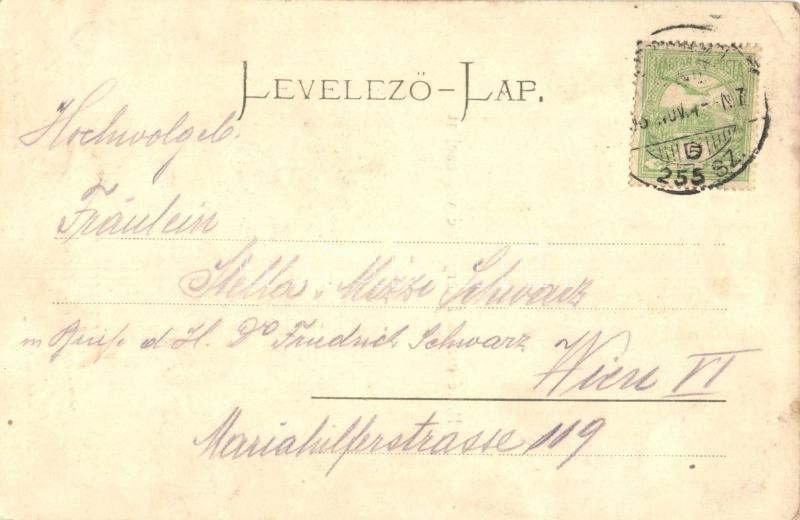 LEVELEZŐ-LAP.
MAGYAR POSTA
NOV. N7
255 SZ.
Hochwolgeb.
Fräulein
Stella, Mizzi Schwarz
d H. Dr Friedrich Schwarz
Wien VI
Mariahilferstrasse 119